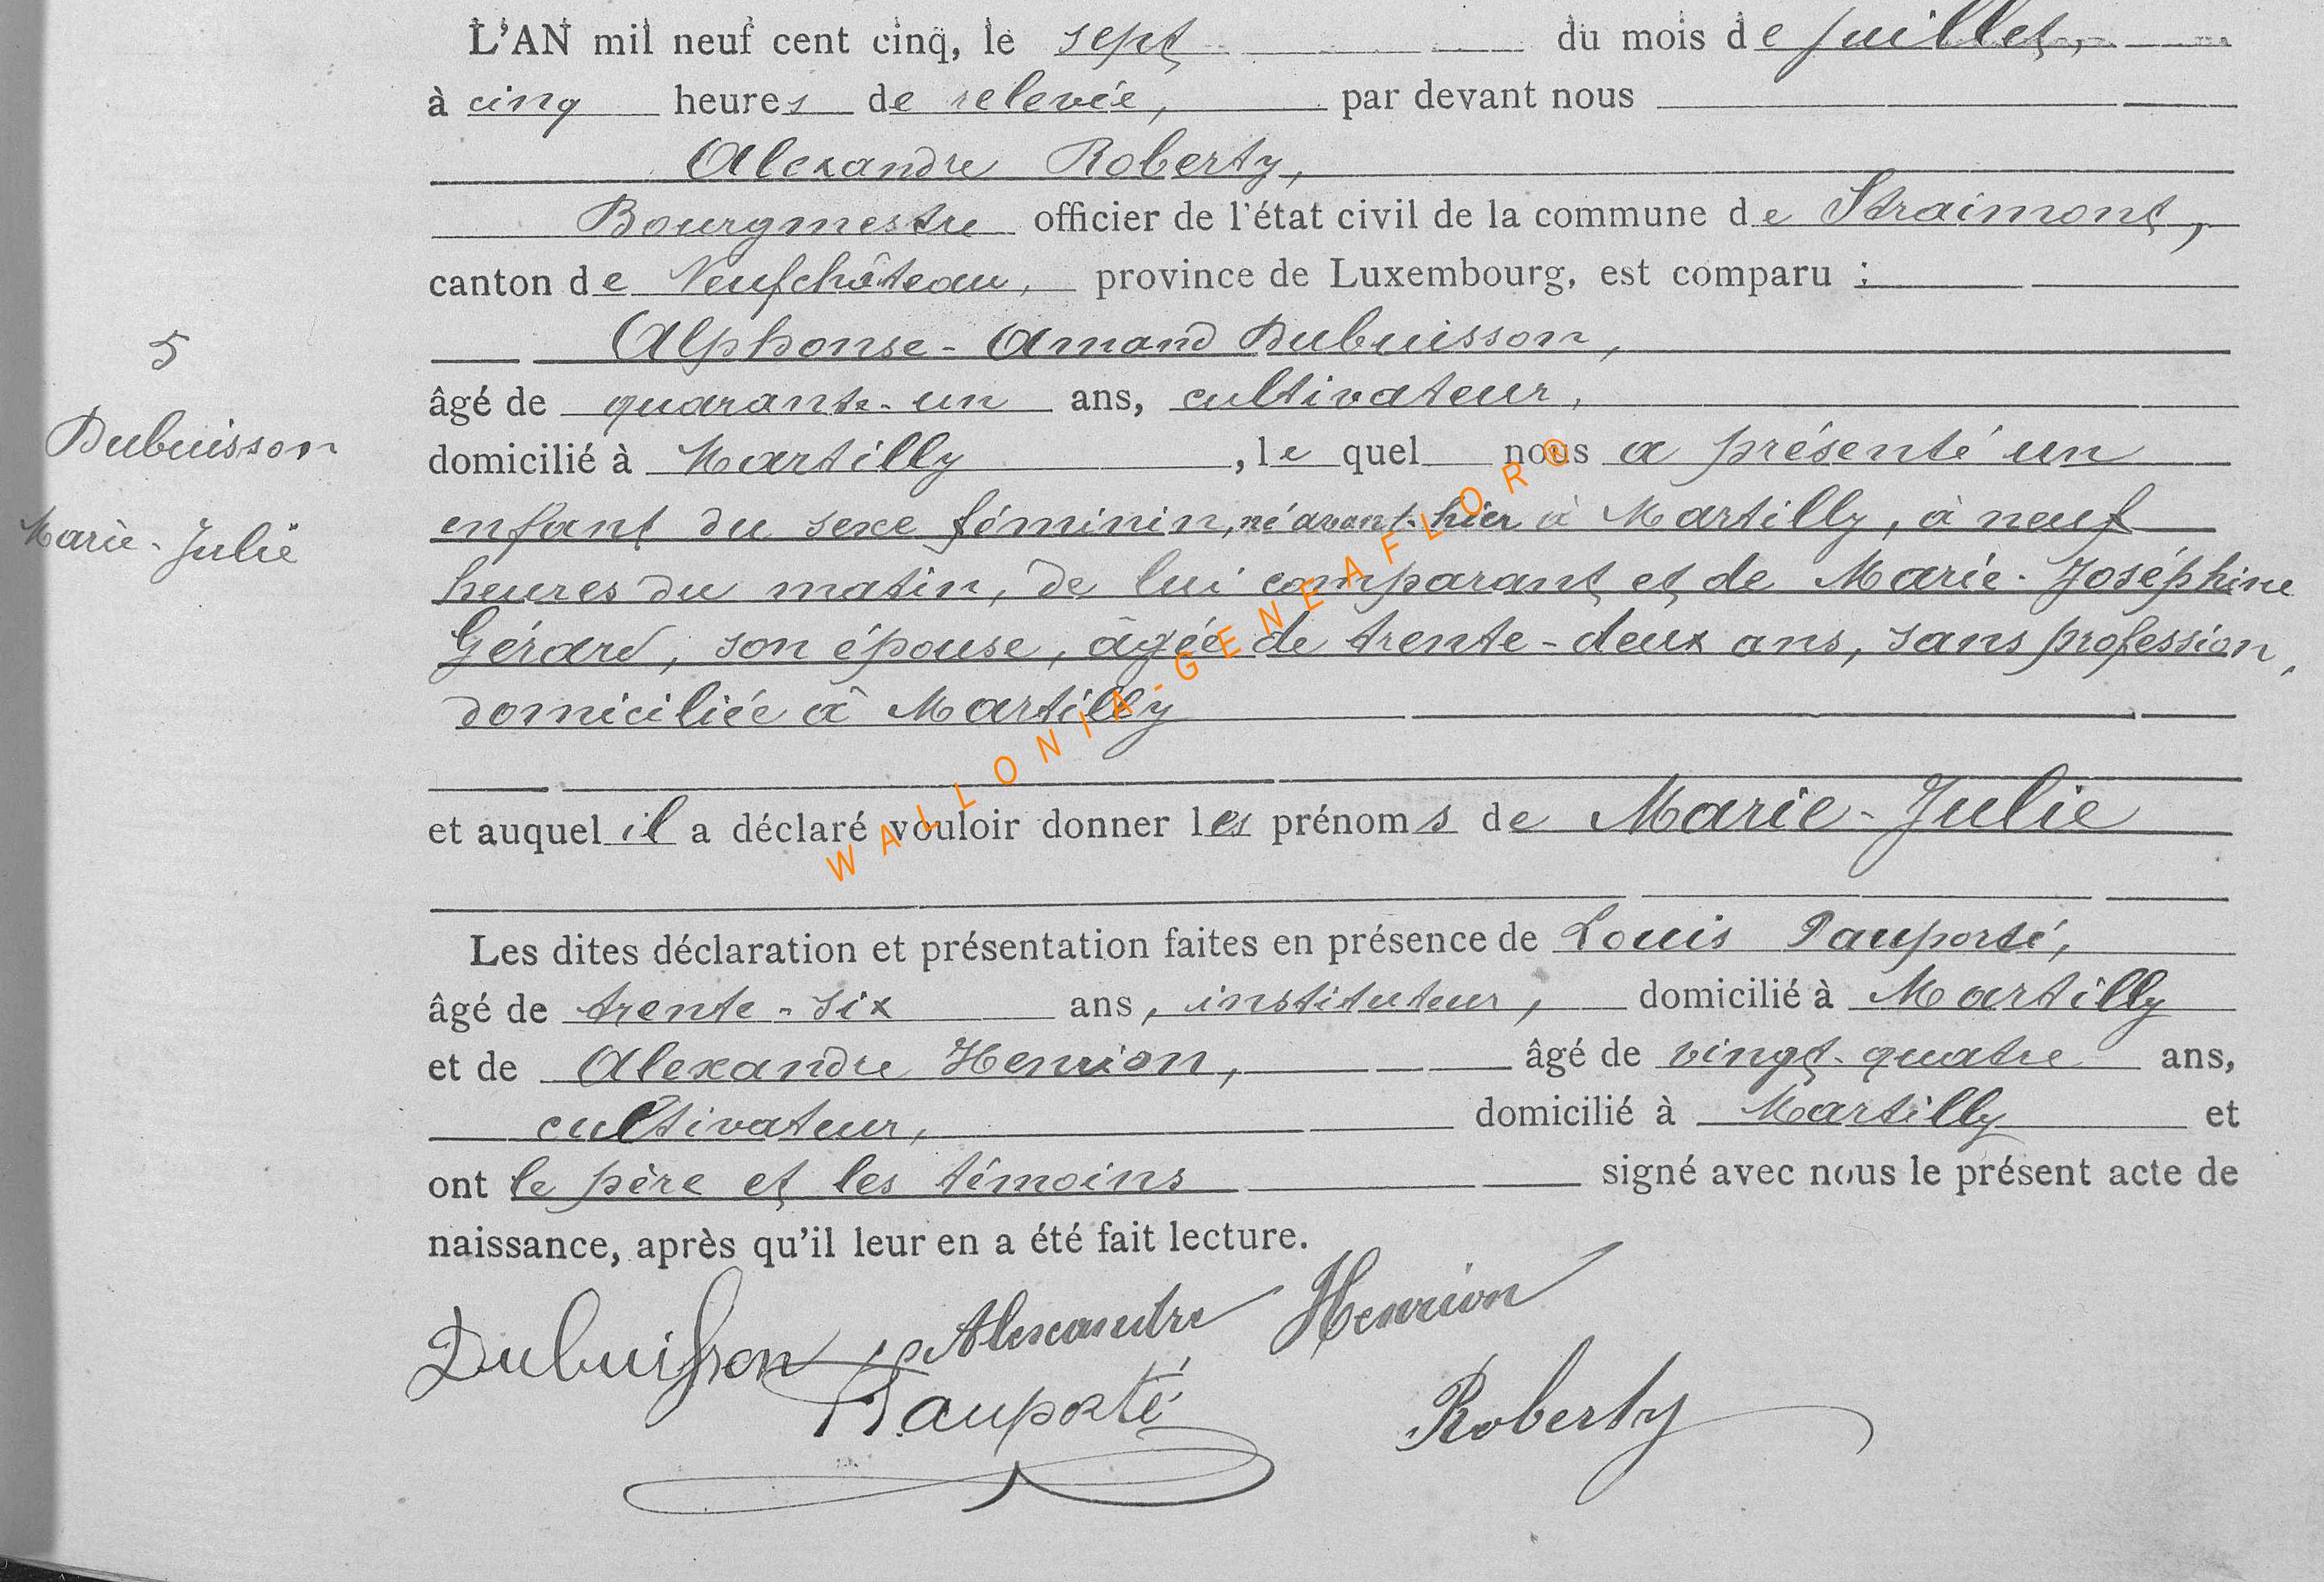 L'AN mil neuf cent cinq, le sept du mois de juillet,
à cinq heures de relevée, par devant nous
Alexandre Roberty,
Bourgmestre officier de l'état civil de la commune de Straimont,
canton de Neufchâteau, province de Luxembourg, est comparu :
Alphonse-Amand Dubuisson,
âgé de quarante-un ans, cultivateur,
domicilié à Martilly, le quel nous a présenté un
enfant du sexe féminin, né avant-hier à Martilly, à neuf
heures du matin, de lui comparant et de Marie-Joséphine
Gérard, son épouse, âgée de trente-deux ans, sans profession,
domiciliée à Martilly
et auquel il a déclaré vouloir donner les prénoms de Marie-Julie
Les dites déclaration et présentation faites en présence de Louis Pauporté,
âgé de trente-six ans, instituteur, domicilié à Martilly
et de Alexandre Henrion, âgé de vingt-quatre ans,
cultivateur, domicilié à Martilly et
ont le père et les témoins signé avec nous le présent acte de
naissance, après qu'il leur en a été fait lecture.
5
Dubuisson
Marie-Julie
Dubuisson Alexandre Henrion
Pauporté Roberty
WALLONIA-GENEAFLOR©